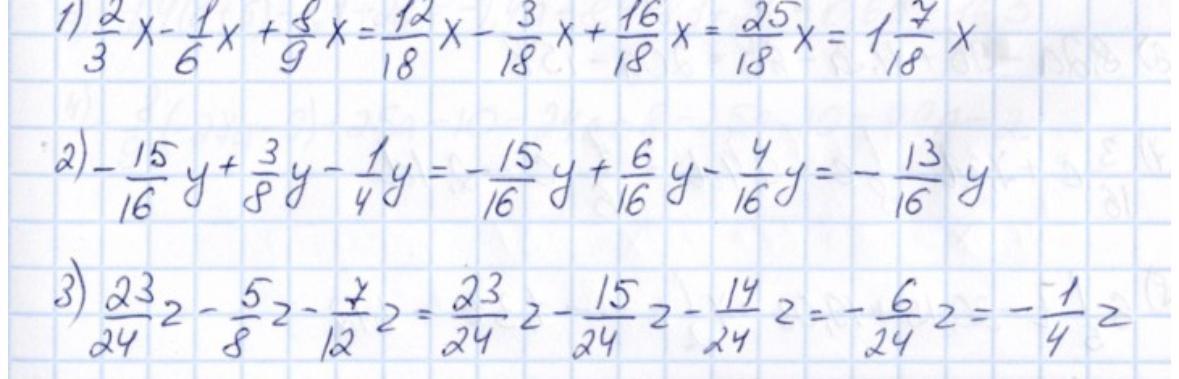 1) 2/3 x - 1/6 x + 8/9 x = 12/18 x - 3/18 x + 16/18 x = 25/18 x = 1 7/18 x
2) - 15/16 y + 3/8 y - 1/4 y = - 15/16 y + 6/16 y - 4/16 y = - 13/16 y
3) 23/24 z - 5/8 z - 7/12 z = 23/24 z - 15/24 z - 14/24 z = - 6/24 z = - 1/4 z